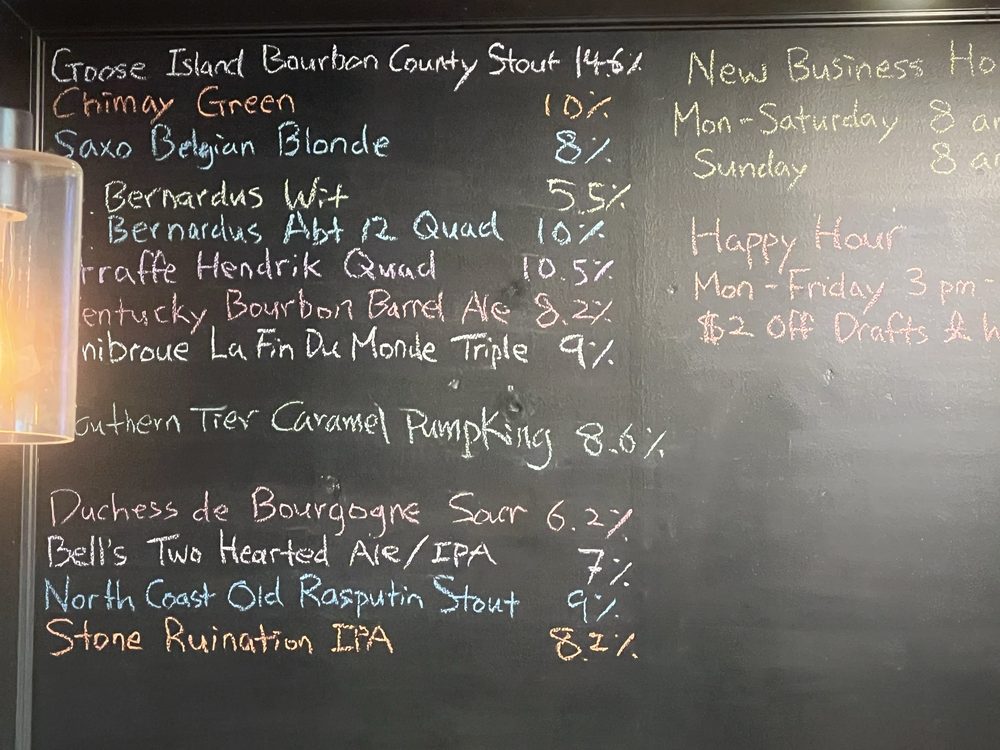 Goose Island Bourbon County Stout 14.6%
Chimay Green 10%
Saxo Belgian Blonde 8%
. Bernardus Wit 5.5%
Bernardus Abt 12 Quad 10%
rraffe Hendrik Quad 10.5%
entucky Bourbon Barrel Ale 8.2%
nibroue La Fin Du Monde Triple 9%
outhern Tier Caramel Pumpking 8.6%
Duchess de Bourgogne Sour 6.2%
Bell's Two Hearted Ale/IPA 7%
North Coast Old Rasputin Stout 9%
Stone Ruination IPA 8.2%
New Business Ho
Mon-Saturday 8 a
Sunday 8 a
Happy Hour
Mon-Friday 3 pm-
$2 Off Drafts &